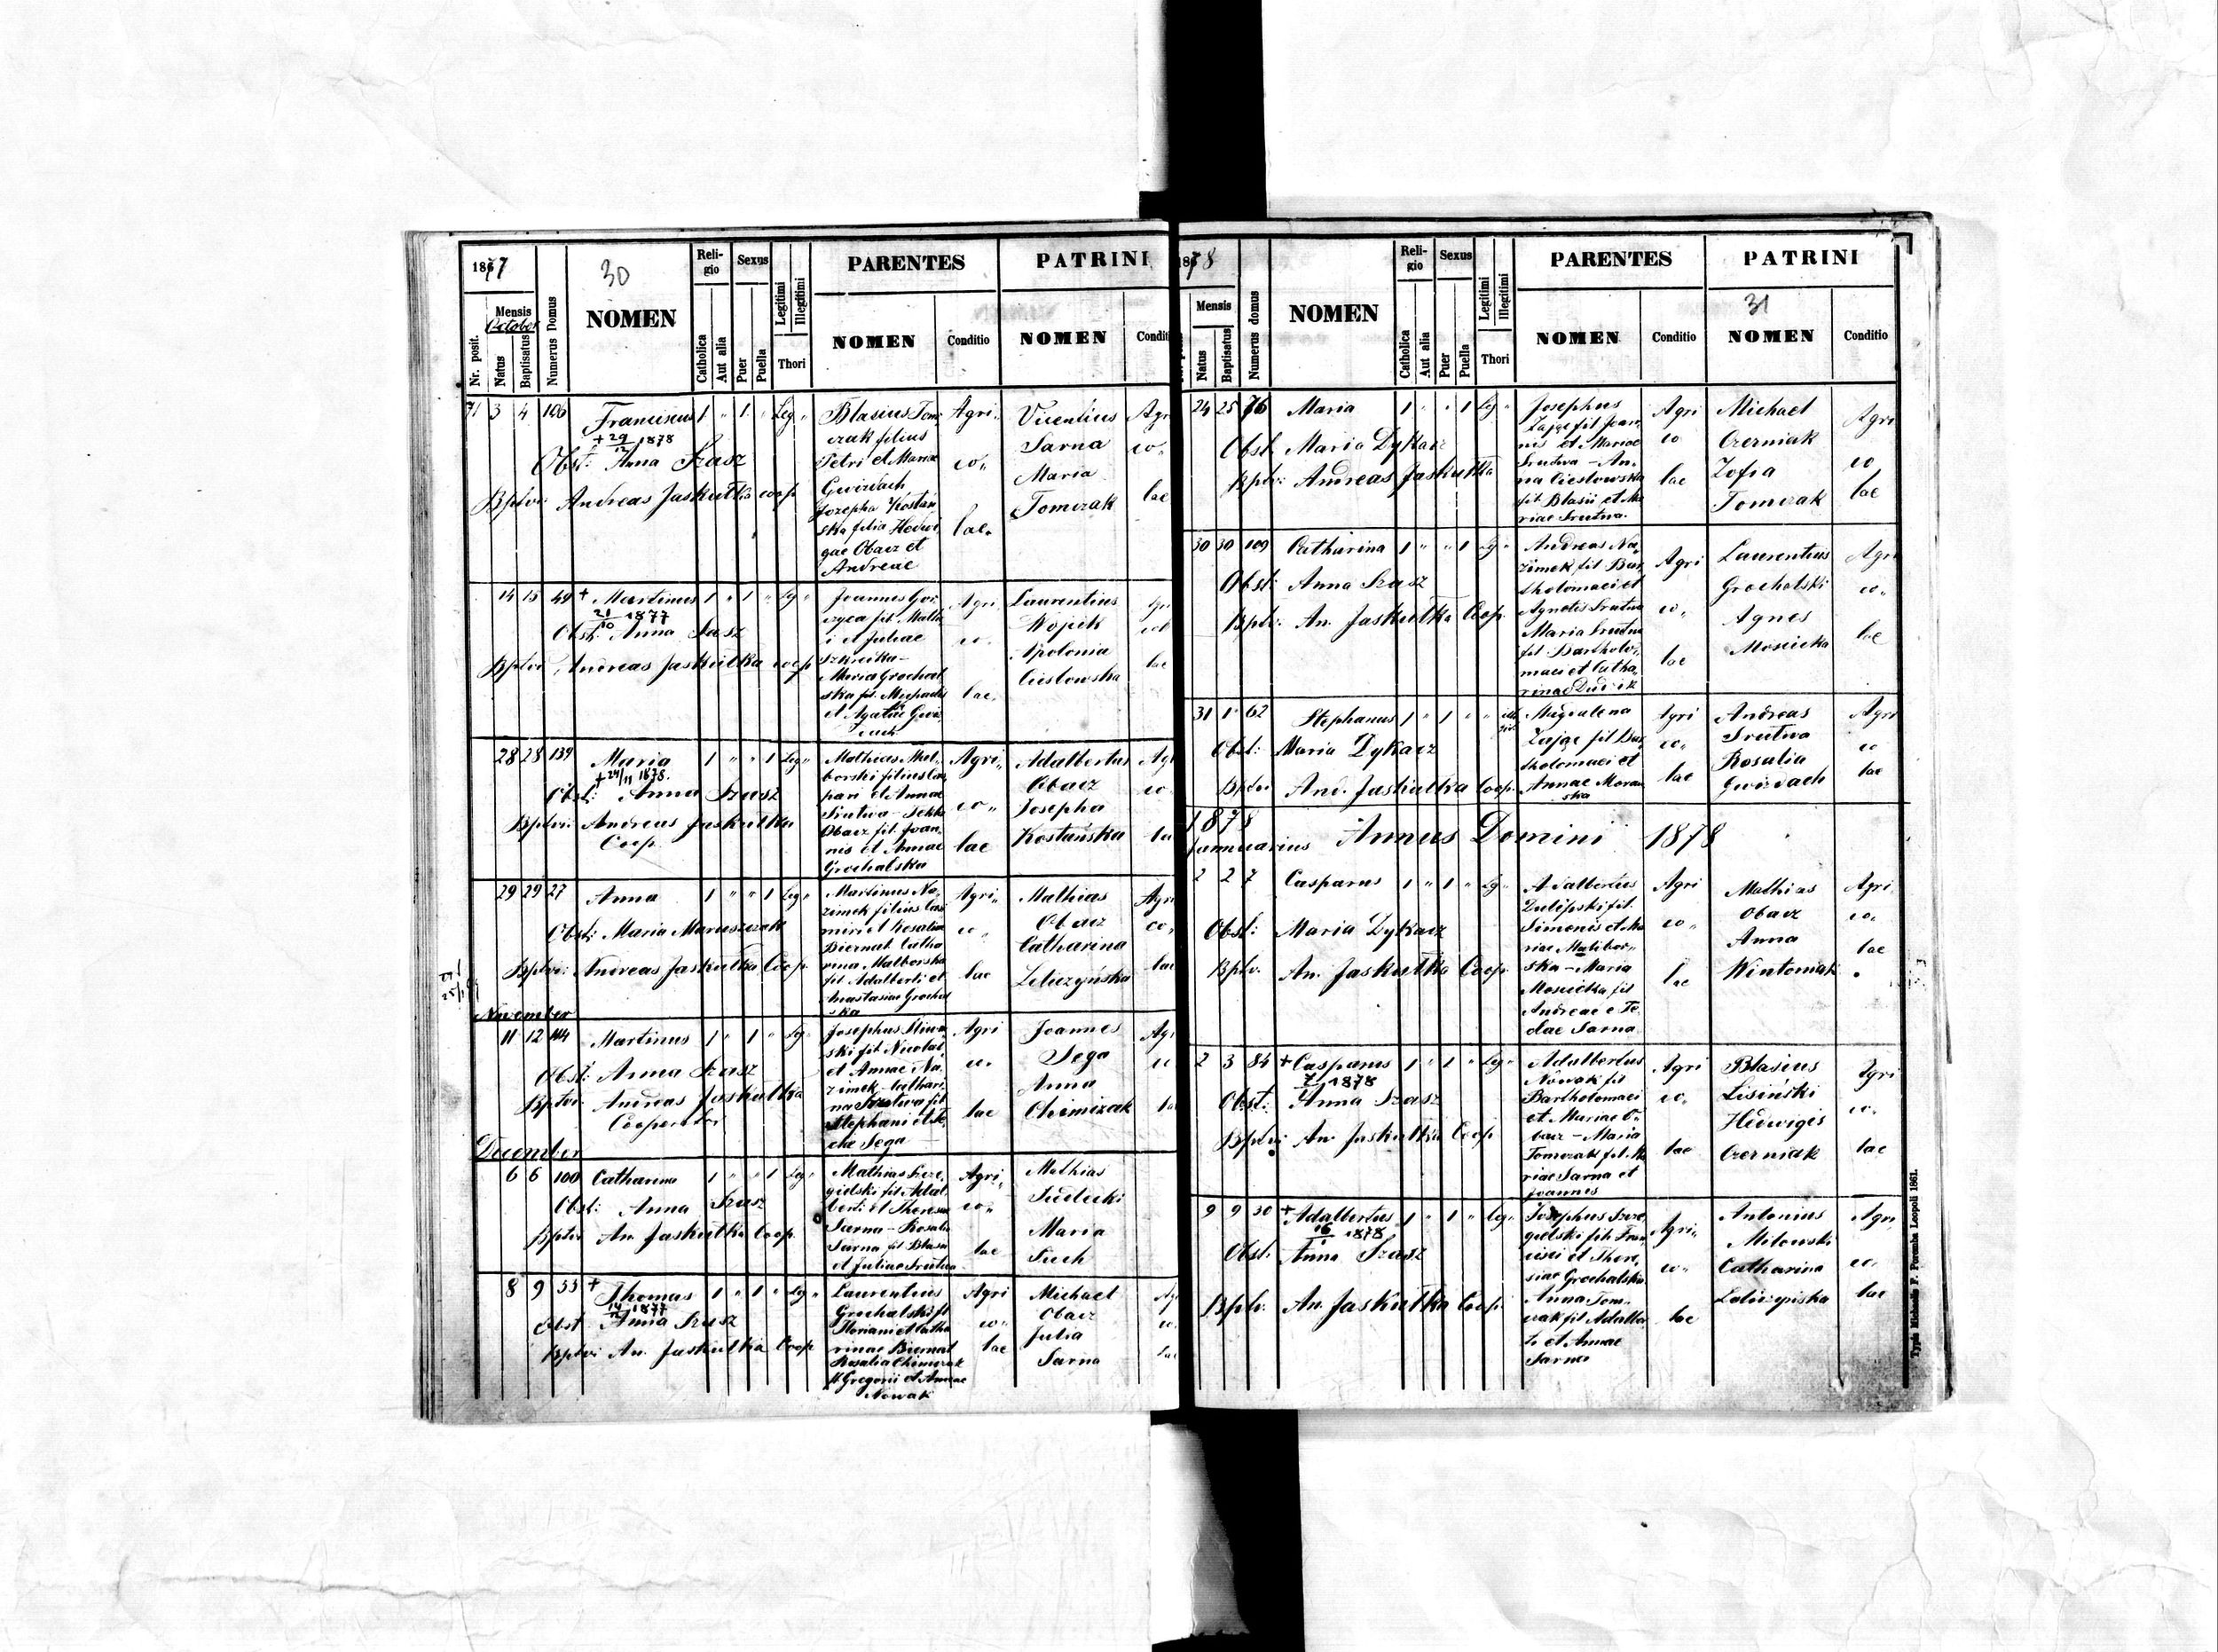 1877
30
Religio
Sexus
Legitimi
Illegitimi
PARENTES
PATRINI
Nr. posit.
Mensis
October
Natus
Baptisatus
Numerus Domus
NOMEN
Catholica
Aut alia
Puer
Puella
Thori
NOMEN
Conditio
NOMEN
Condit
71 3 4 106 Franciscus 1 " 1 " Leg "
+ 29/12 1878
Obst: Anna Szasz
Bptvi Andreas Jaskułka coop
Blasius Tom
czak filius
Petri et Mariae
Gwizdach
Jozepha Kostań
ska filia Hedwi
gae Obacz et
Andreae
Agri
co
lae
Vicentius
Sarna
Maria
Tomczak
Agri
co
lae
14 15 49 + Martinus 1 " 1 " Leg "
21/10 1877
Obst: Anna Szasz
Bptvi Andreas Jaskułka coop
Joannes
fil Math
i et Juliae
Maria Grochal
ska fil. Michaelis
et Agathae Gwiz
dach
Agri
co
lae
Laurentius
Wojcik
Apolonia
Cieslowska
lae
28 28 139 Maria 1 " " 1 Leg "
+ 24/11 1878.
Obst: Anna Szasz
Bptvi: Andreas Jaskułka
Coop.
Mathias Mal
borski filius Cas
pari et Annae
Srutwa - Tekla
Obacz fil. Joan
nis et Annae
Grochalska
Agri
co
lae
Adalbertus
Obacz
Josepha
Kostańska
co
29 29 27 Anna 1 " " 1 Leg "
Obst: Maria Maruszczak
Bptvi: Andreas Jaskułka Coop.
Martinus Na
zimek filius Casi
miri et Rosalia
Biernat Catha
rina Malborska
fil Adalberti et
Anastasiae Grochal
ska
Agri
co
lae
Mathias
Obacz
Catharina
Agri
co
lae
November
11 12 144 Martinus 1 " 1 " Leg
Obst: Anna Szasz
Bptvi Andreas Jaskułka
Cooperator
Josephus Sliwa
ski fil Nicolai
et Annae Na
zimek - Cathari
na Srutwa fil
Stephani et Te
clae Sega
Agri
co
lae
Joannes
Sega
Anna
Chimizak
December
6 6 100 Catharina 1 " " 1 Leg
Obst: Anna Szasz
Bptvi An Jaskułka Coop.
Mathias Szcze
gielski fil Adal
berti et Theresae
Sarna - Rosalia
Sarna fil Blasii
et Juliae Srutwa
Agri
co
lae
Mathias
Maria
8 9 33 + Thomas 1 " 1 " Leg "
14/12 1877
Obst Anna Szasz
Bptvi An. Jaskułka Coop
Laurentius
Grochalski fil
Floriani et Catha
rinae Biernat
Rosalia Chimizak
fil Gregorii et Annae
Nowak
Agri
co
lae
Michael
Obacz
Julia
Sarna
1878
Religio
Sexus
Legitimi
Illegitimi
PARENTES
PATRINI
31
Mensis
Natus
Baptisatus
Numerus domus
NOMEN
Catholica
Aut alia
Puer
Puella
Thori
NOMEN
Conditio
NOMEN
Conditio
24 25 76 Maria 1 " " 1 Leg "
Obst. Maria Dykacz
Bptvi: Andreas Jaskułka
Josephus
Zając fil Joan
nis et Mariae
Srutwa - An
na Cieslowska
fil Blasii et Ma
riae Srutwa.
Agri
co
lae
Michael
Czerniak
Zofia
Tomczak
Agri
co
lae
30 30 109 Catharina 1 " " 1 Leg "
Obst: Anna Szasz
Bptvi. An. Jaskułka Coop.
Andreas Na
zimek fil Bar
tholomaei et
Agnetis Srutwa
Maria Srutwa
fil Bartholo
maei et Catha
rinae Dudzik
Agri
co
lae
Laurentius
Grochalski
Agnes
Mosiecka
Agri
co
lae
31 1 62 Stephanus 1 " 1 "
Obst: Maria Dykacz
Bptvi And. Jaskułka Coop.
Magdalena
Zając fil Bar
tholomaei et
Annae Moraw
ska
Agri
co
lae
Andreas
Srutwa
Rosalia
Gwizdach
Agri
co
lae
1878
Januarius Annus Domini 1878
2 2 7 Casparus 1 " 1 " Leg "
Obst: Maria Dykacz
Bptv. An. Jaskułka Coop.
Adalbertus
fil.
Simonis et Ma
riae Malbor
ska - Maria
Mosiecka fil
Andreae et Te
clae Sarna
Agri
co
lae
Mathias
Obacz
Anna
Wintoniak
Agri
co
lae
2 3 84 + Casparus 1 " 1 " Leg "
7/1 1878
Obst: Anna Szasz
Bptvi An. Jaskułka Coop
Adalbertus
Nowak fil
Bartholomaei
et Mariae O
bacz - Maria
Tomczak fil. Ma
riae Sarna et
Joannes
Agri
co
lae
Blasius
Lisiński
Hedwigis
Czerniak
Agri
co
lae
9 9 30 + Adalbertus 1 " 1 " Leg "
16/1 1878
Obst. Anna Szasz
Bptv. An. Jaskułka Coop
Josephus Szcze
gielski fil Fran
cisci et There
siae Grochalska
Anna Tom
czak fil Adalber
ti et Annae
Sarna
Agri
co
lae
Antonius
Milowski
Catharina
Agri
co
lae
Typis Michaelis F. Poremba Leopoli 1861.